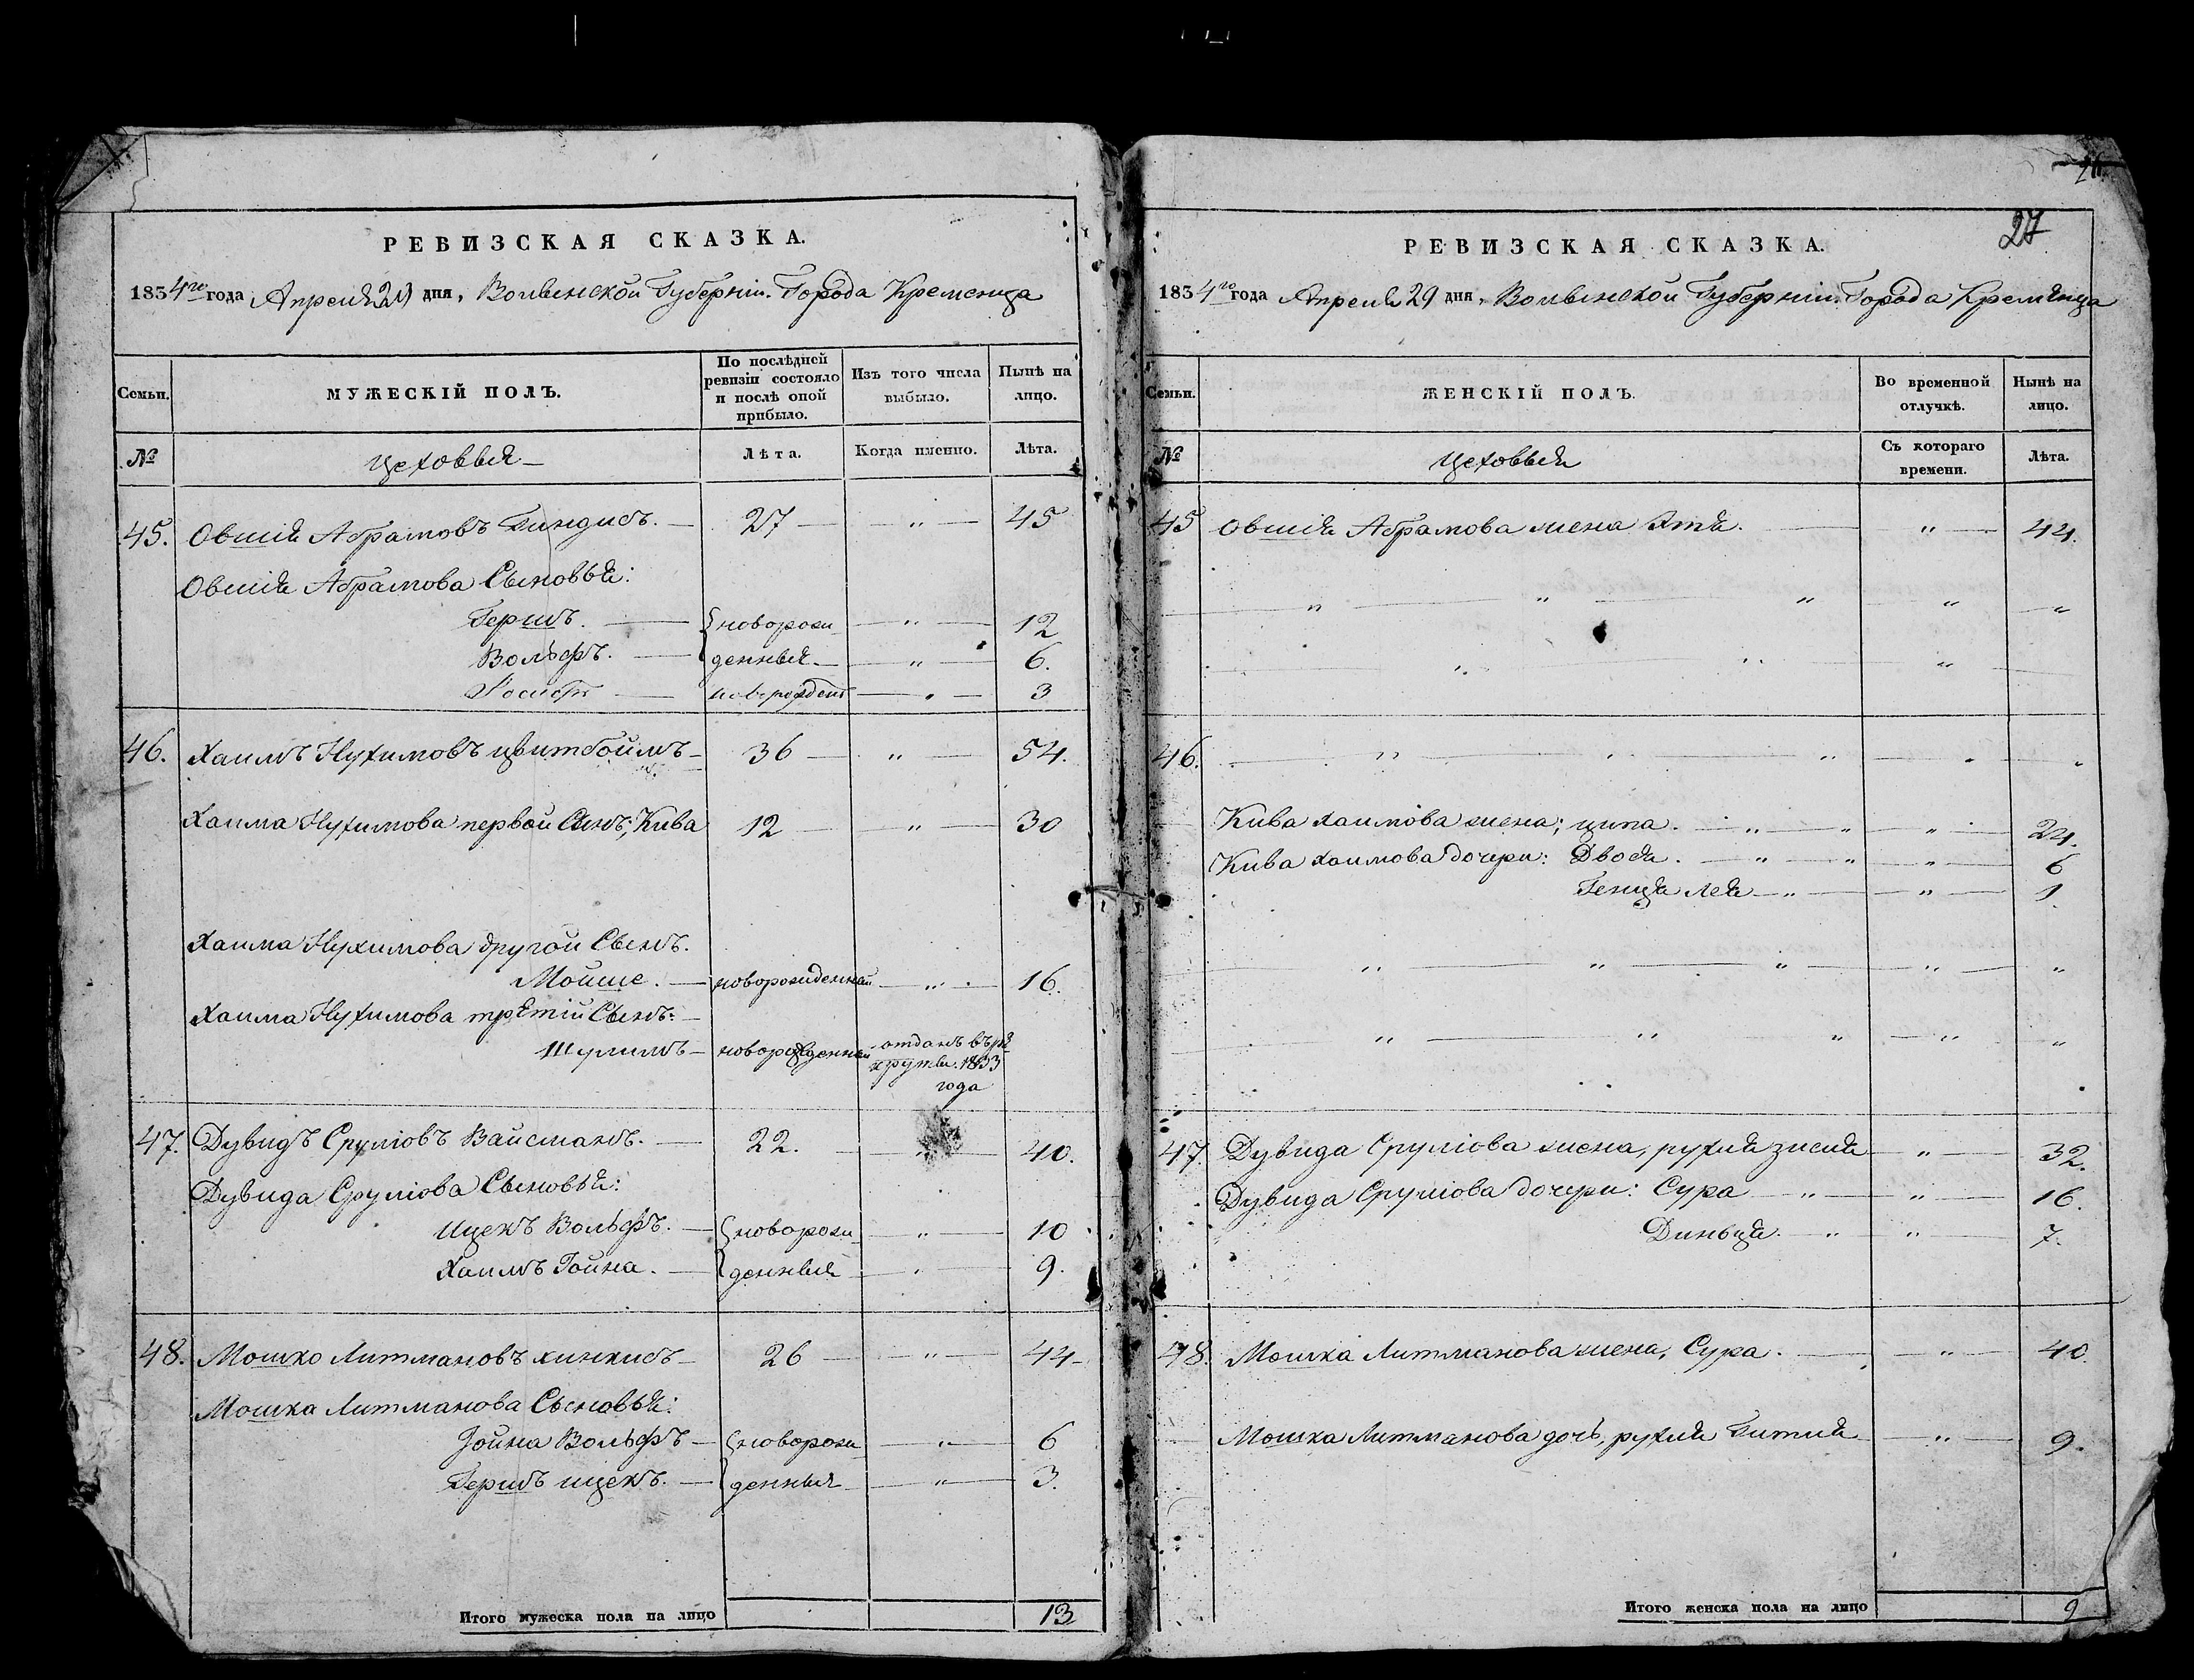 РЕВИЗСКАЯ СКАЗКА.
1834го года Апреля 29 дня, Волынской Губерніи. Города Кременца
Семьи.
МУЖЕСКІЙ ПОЛЪ.
По послѣдней
ревизіи состояло
и послѣ оной
прибыло.
Изъ того числа
выбыло.
Нынѣ на
лицо.
№
Цеховыя
Лѣта.
Когда именно.
Лѣта.
45. Овшія Абрамовъ 27 — „ — 45
Овшія Абрамова Сыновья:
Гершъ. — новорож — „ — 12
Вольфъ. — денныя — „ — 6.
новорожден — „ — 3
46. Хаимъ Нухимовъ цвитбоймъ 36 — „ — 54.
Хаима Нухимова первой Сынъ; Кива 12 — „ — 30
Хаима Нухимова другой Сынъ.
Мойше. — новорожденный — „ — 16.
Хаима Нухимова третій Сынъ:
Шулимъ — новорожденный отданъ въ ре
круты. 1833
года
47. Дувидъ Сруліовъ Вайсманъ. — 22. — „ — 40.
Дувида Сруліова Сыновья:
Ицекъ Вольфъ. — новорож — „ — 10
Хаимъ Іойна. — денныя — „ — 9.
48. Мошко Литмановъ хинкисъ 26 — „ — 44
Мошка Литманова Сыновья:
Іойна Вольфъ — новорож — „ — 6
Гершъ ицекъ. — денныя — „ — 3.
Итого мужеска пола на лицо 13
27
РЕВИЗСКАЯ СКАЗКА.
1834го года Апреля 29 дня, Волынской Губерніи. Города Кремянца
Семьи.
ЖЕНСКІЙ ПОЛЪ.
Во временной
отлучкѣ.
Нынѣ на
лицо.
№
Цеховыя
Съ котораго
времени.
Лѣта.
45 Овшія Абрамова жена Этя. — „ — 44.
46.
Кива Хаимова жена; ципа. — „ — 24.
Кива Хаимова дочери: Двося. — „ — 6
Генця Лея — „ — 1.
47. Дувида Сруліова жена, рухля зисля — „ — 32.
Дувида Сруліова дочери: Сура — „ — 16.
Диньця. — „ — 7.
48. Мошка Литманова жена, Сура. — „ — 40.
Мошка Литманова дочь, рухля Гитля — „ — 9.
Итого женска пола на лицо 9